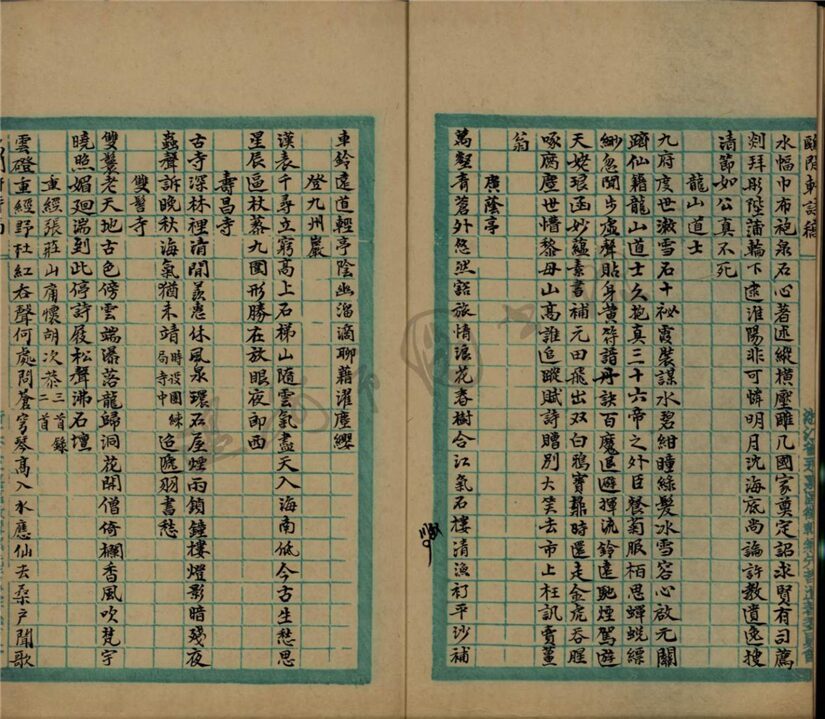 水幅巾布袍泉石心著述縱橫壓雕几國家奠定詔求賢有司薦
剡拜彤陛蒲輪下逮淮陽非可悼明月沈海底尚論許教遺逸搜
清節如公真不死
龍山道士
九府度世漱雪石十祕霞裝謀水碧紺瞳綠髮冰雪容心啟元關
躋仙籍龍山道士久抱真三十六帝之外臣餐菊服柏思蟬蛻縹
緲忽聞步虛聲貼身黃符諳丹訣百魔退避揮流鈴遠馳煙駕遊
天姥琅函妙蘊素書補元田飛出雙白鴉寶鼎時還走金虎吞腥
啄腐塵世憎黎母山高誰追蹤賦詩贈別大笑去市上枉訊賣薑
翁
廣蔭亭
萬壑青蒼外悠然話旅情浪花春樹合江氣石樓清漁籪平沙補
車鈴遠道輕亭陰幽溜滴聊藉濯塵纓
登九州巖
漢表千尋立窮高上石梯山隨雲氣盡天入海南低今古生愁思
星辰逼杖藜九圍形勝在放眼夜郎西
壽昌寺
古寺深林裡清閒羨老休風泉環石屋煙雨鎖鐘樓燈影暗殘夜
蟲聲訴晚秋海氣猶未靖時設團練局寺中迨遞羽書愁
雙髻寺
雙鬟老天地古色傍雲端瀑落龍歸洞花開僧倚欄香風吹梵宇
曉照媚迴湍到此停詩屐松聲沸石壇
重經張莊山廟懷胡次恭三首錄二首
雲磴重經野杜紅右聲何處問蒼穹琴高入水應仙去桑戶聞歌